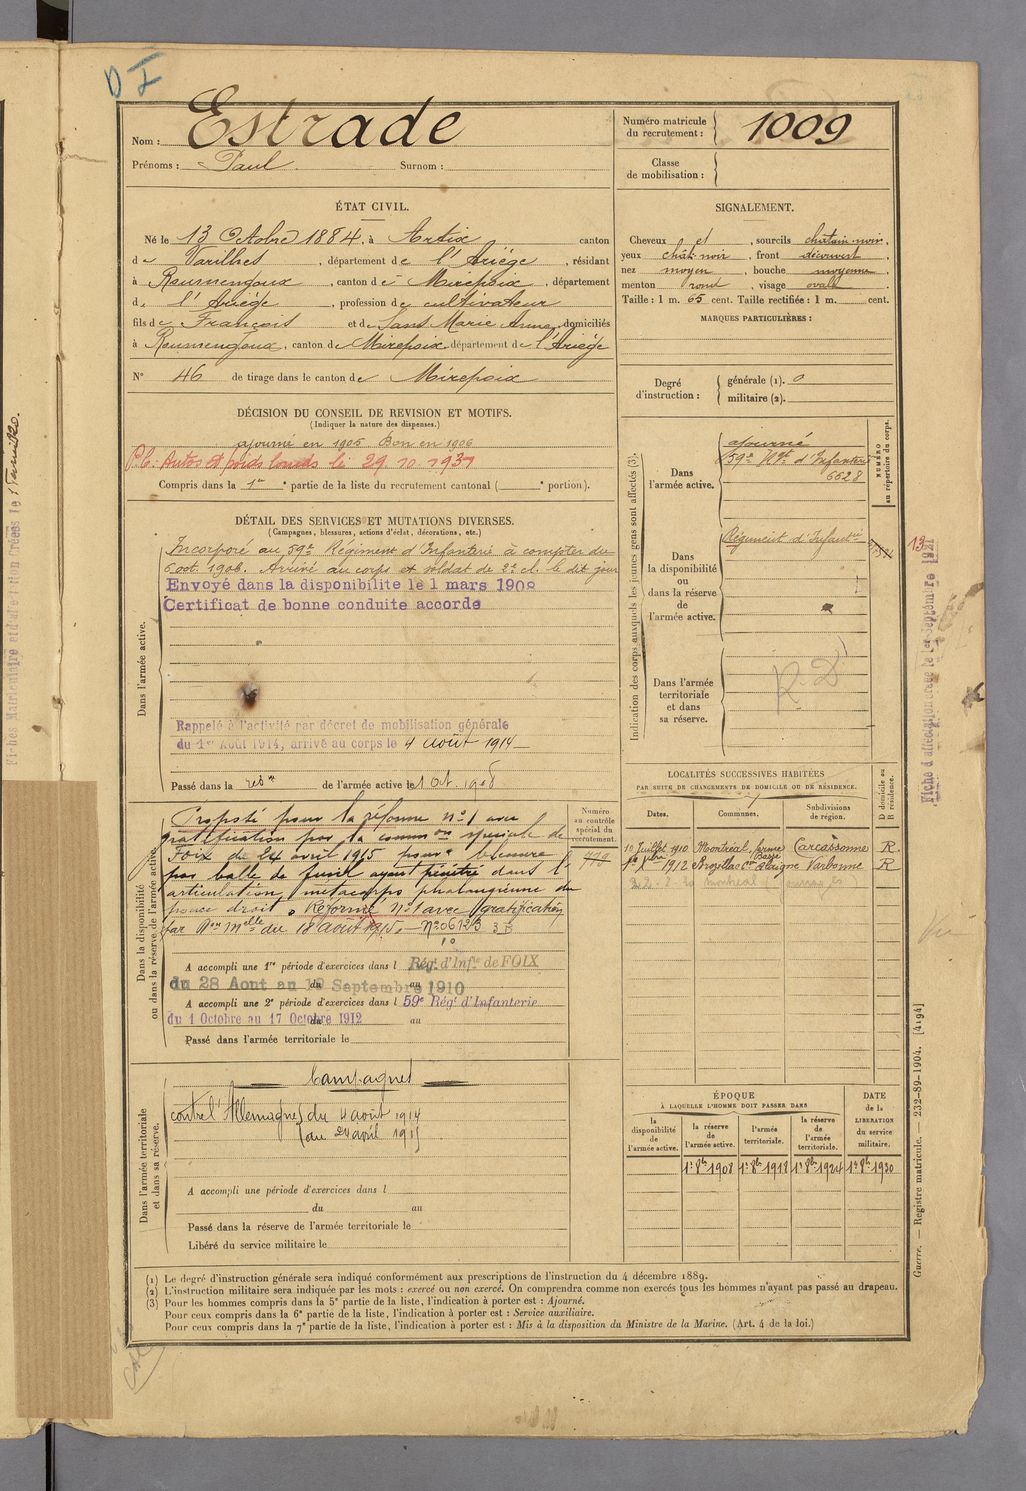 D I
Nom : Estrade
Prénoms : Paul Surnom :
Numéro matricule du recrutement : 1009
Classe de mobilisation :
ÉTAT CIVIL.
Né le 13 Octobre 1884, à Artix canton
de Varilhes, département de l'Ariège, résidant
à Roumengoux, canton de Mirepoix, département
de l'Ariège, profession de cultivateur
fils de François et de Sans Marie Anne, domiciliés
à Roumengoux, canton de Mirepoix, département de l'Ariège
N° 46 de tirage dans le canton de Mirepoix
SIGNALEMENT.
Cheveux et, sourcils châtain noir,
yeux chât. noir, front découvert
nez moyen, bouche moyenne
menton rond, visage ovale
Taille : 1 m. 65 cent. Taille rectifiée : 1 m. cent.
MARQUES PARTICULIÈRES :
Degré d'instruction :
générale (1). 0
militaire (2).
DÉCISION DU CONSEIL DE REVISION ET MOTIFS.
(Indiquer la nature des dispenses.)
ajourné en 1905. Bon en 1906
P.C. Autos et poids lourds le 29.10.1931
Compris dans la 1re partie de la liste du recrutement cantonal ( e portion).
DÉTAIL DES SERVICES ET MUTATIONS DIVERSES.
(Campagnes, blessures, actions d'éclat, décorations, etc.)
Dans l'armée active.
Incorporé au 59e Régiment d'Infanterie à compter du
6 oct. 1906. Arrivé au corps et soldat de 2e cl. le dit jour
Envoyé dans la disponibilite le 1 mars 1908
Certificat de bonne conduite accorde
Rappelé à l'activité par décret de mobilisation générale
du 1er Août 1914, arrivé au corps le 4 août 1914
Passé dans la resve de l'armée active le 1 Oct. 1908
Indication des corps auxquels les jeunes gens sont affectés (3).
NUMÉRO au répertoire du corps.
Dans l'armée active.
ajourné
59e Rgt d'Infanterie
6628
Dans la disponibilité ou dans la réserve de l'armée active.
Régiment d'Infanterie
13
Dans l'armée territoriale et dans sa réserve.
R. D
Fiche d'affectation créée le 1er Septembre 1927
Dans la disponibilité ou dans la réserve de l'armée active.
Numéro au contrôle spécial du recrutement.
Proposé pour la réforme n° 1 avec
gratification par la common spéciale de
Foix du 24 avril 1915 pour "blessure
par balle de fusil ayant pénétré dans l'
articulation métacarpo phalangienne du
pouce droit". Réformé n° 1 avec gratification
par Don Melle du 18 août 1915. — N° 06123
A accompli une 1re période d'exercices dans l Rég. d'Infie de FOIX
du 28 Aout au 19 Septembre 1910
A accompli une 2e période d'exercices dans l 59e Régt d'Infanterie
du 1 Octobre au 17 Octobre 1912 au
Passé dans l'armée territoriale le
LOCALITÉS SUCCESSIVES HABITÉES
PAR SUITE DE CHANGEMENTS DE DOMICILE OU DE RÉSIDENCE.
Dates. Communes. Subdivisions de région. D domicile ou R résidence.
10 Juillet 1910 Montréal, ferme Basse Carcassonne R.
1912 Narbonne R
Dans l'armée territoriale et dans sa réserve.
Campagnes
contre l'Allemagne du 4 août 1914
au 24 avril 1915
A accompli une période d'exercices dans l
du au
Passé dans la réserve de l'armée territoriale le
Libéré du service militaire le
ÉPOQUE
À LAQUELLE L'HOMME DOIT PASSER DANS
DATE de la LIBÉRATION du service militaire.
la disponibilité de l'armée active. la réserve de l'armée active. l'armée territoriale. la réserve de l'armée territoriale.
1r 8bre 1908 1r 8bre 1918 1r 8bre 1924 1r 8bre 1930
Guerre. — Registre matricule. — 232-89-1904. [4194]
(1) Le degré d'instruction générale sera indiqué conformément aux prescriptions de l'instruction du 4 décembre 1889.
(2) L'instruction militaire sera indiquée par les mots : exercé ou non exercé. On comprendra comme non exercés tous les hommes n'ayant pas passé au drapeau.
(3) Pour les hommes compris dans la 5e partie de la liste, l'indication à porter est : Ajourné.
Pour ceux compris dans la 6e partie de la liste, l'indication à porter est : Service auxiliaire.
Pour ceux compris dans la 7e partie de la liste, l'indication à porter est : Mis à la disposition du Ministre de la Marine. (Art. 4 de la loi.)